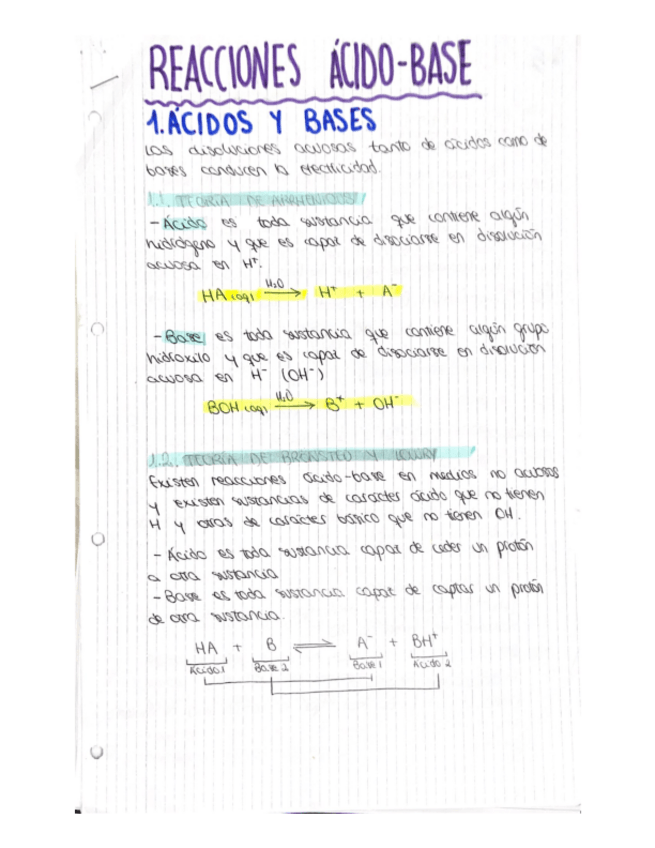 REACCIONES ÁCIDO-BASE
1. ÁCIDOS Y BASES
Las disoluciones acuosas tanto de ácidos como de
bases conducen la electricidad.
1.1. TEORÍA DE ARRHENIOUS
- Ácido es toda sustancia que contiene algún
hidrógeno y que es capaz de disociarse en disolución
acuosa en H⁺.
HA (aq) —H₂O→ H⁺ + A⁻
- Base es toda sustancia que contiene algún grupo
hidroxilo y que es capaz de disociarse en disolución
acuosa en H⁻ (OH⁻)
BOH (aq) —H₂O→ B⁺ + OH⁻
1.2. TEORÍA DE BRÖNSTED Y LOWRY
Existen reacciones ácido-base en medios no acuosos
y existen sustancias de carácter ácido que no tienen
H y otras de carácter básico que no tienen OH.
- Ácido es toda sustancia capaz de ceder un protón
a otra sustancia
- Base es toda sustancia capaz de captar un protón
de otra sustancia.
HA + B ⇌ A⁻ + BH⁺
Ácido 1 Base 2 Base 1 Ácido 2